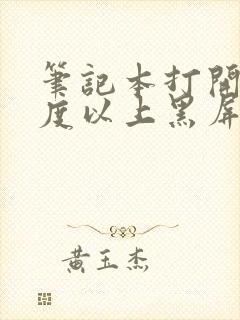 筆記本打開
度以上黑屏
黃玉杰